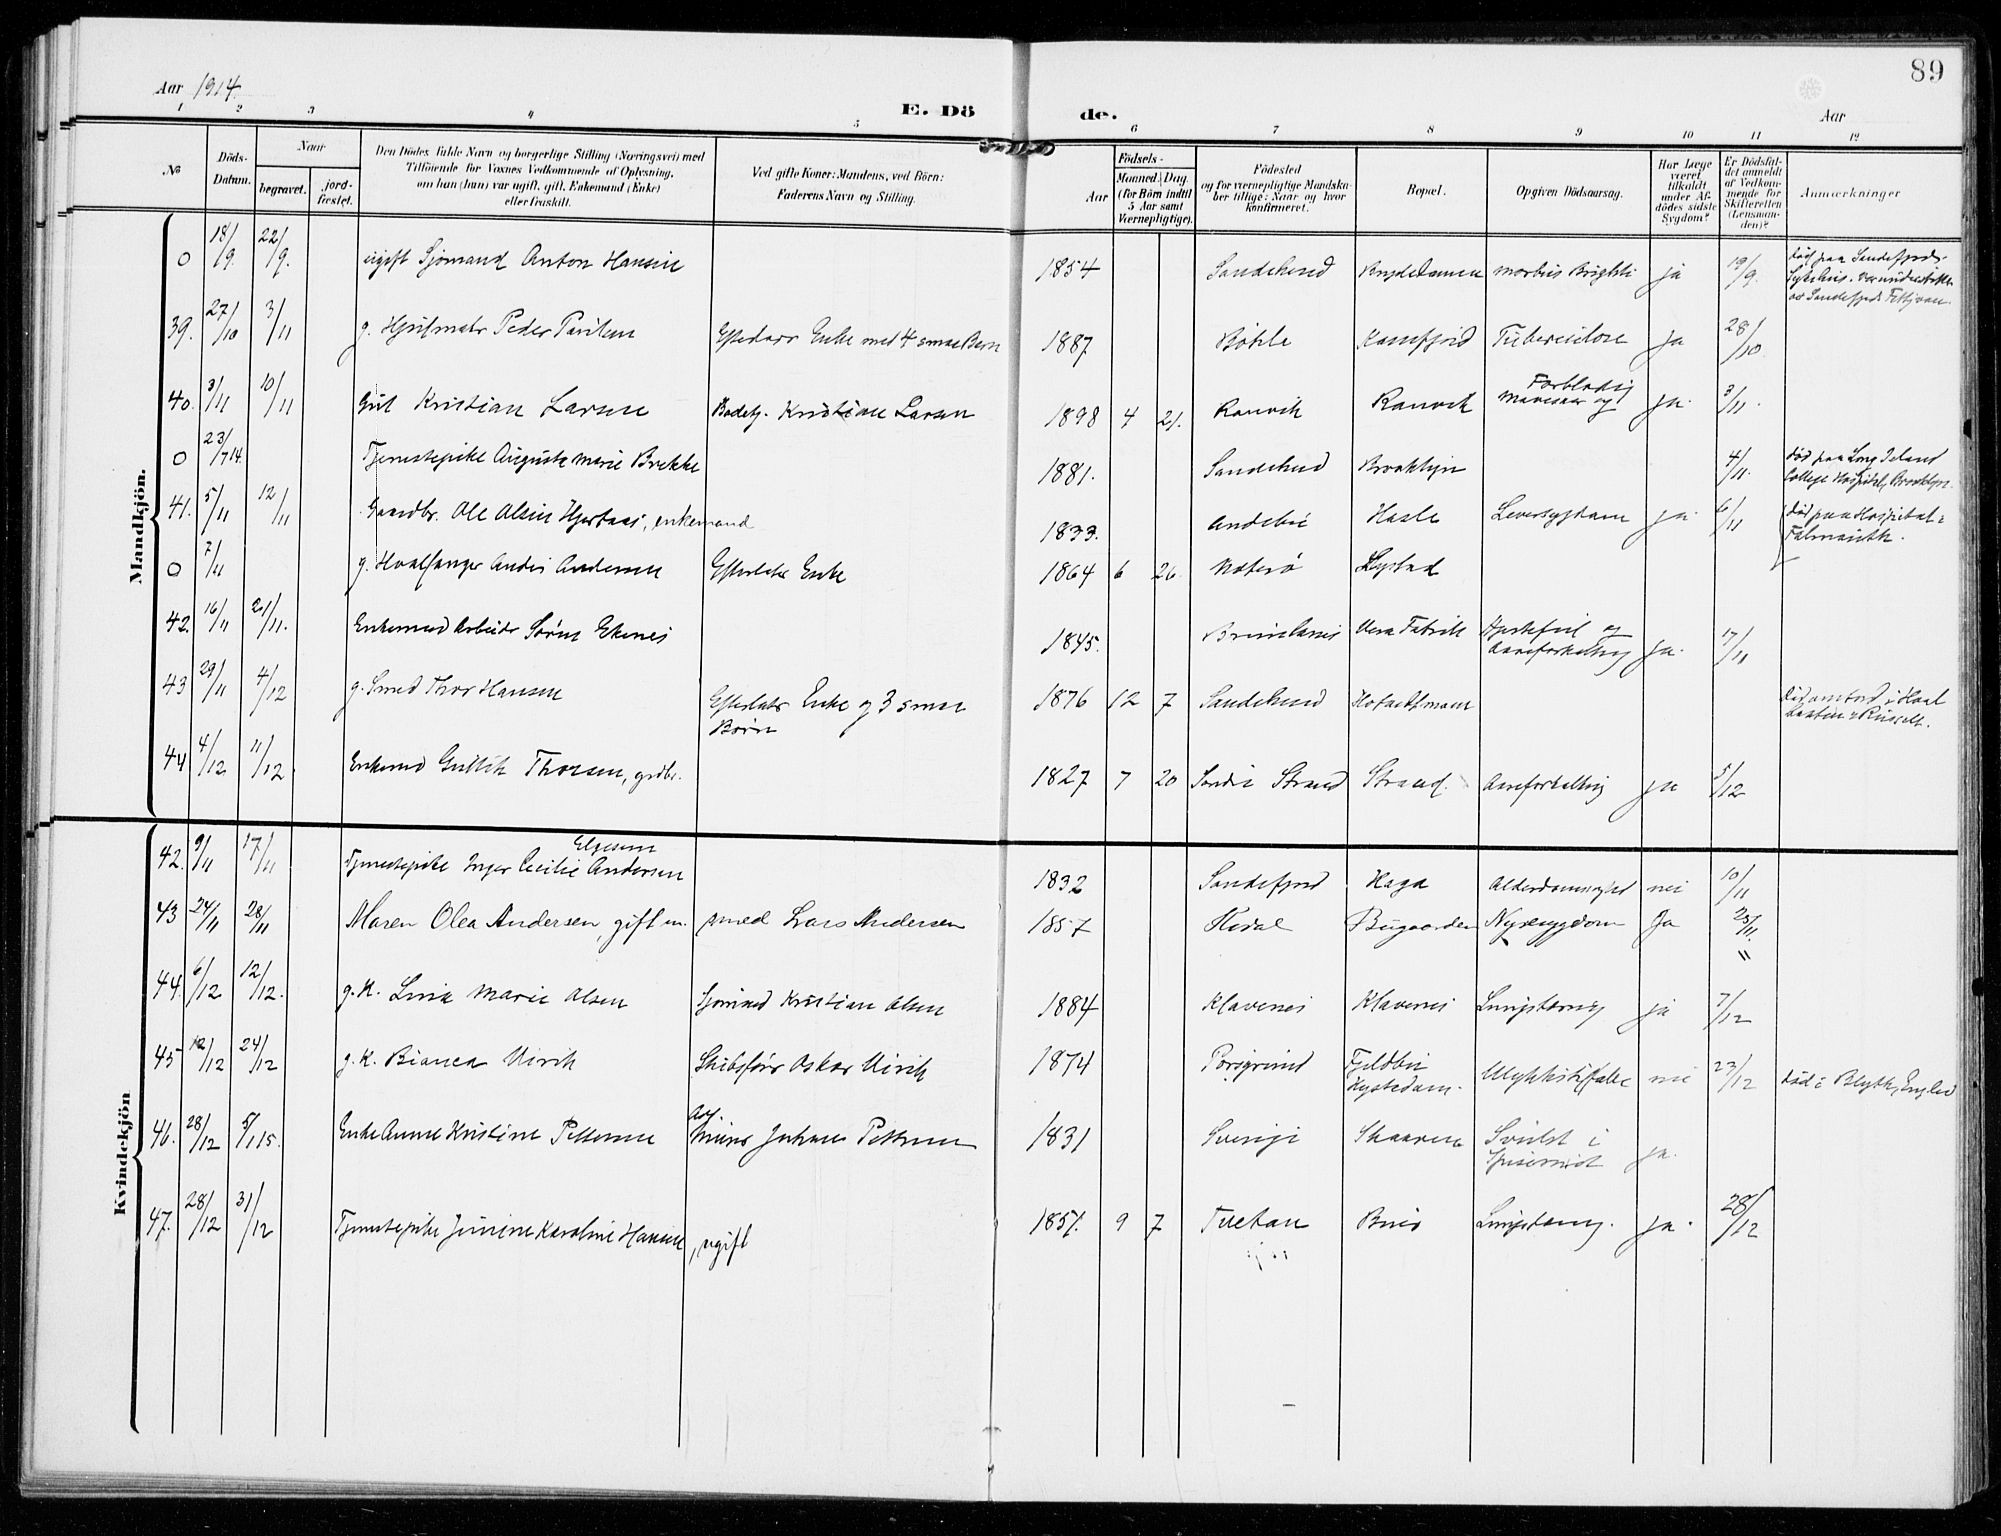 89
Aar 1914.
E. Dö de.
Aar
1 2 3 4 5 6 7 8 9 10 11 12
No
Döds-Datum.
Naar
begravet.
jord-fæstet.
Den Dödes fulde Navn og borgerlige Stilling (Næringsvei) med
Tilföiende for Voxnes Vedkommende af Oplysning,
om han (hun) var ugift, gift, Enkemand (Enke)
eller fraskilt.
Ved gifte Koner: Mandens, ved Börn:
Faderens Navn og Stilling.
Födsels-
Aar
Maaned. Dag.
(for Börn indtil
5 Aar samt
Værnepligtige).
Födested
og for værnepligtige Mandska-
ber tillige: Naar og hvor
konfirmeret.
Bopæl.
Opgiven Dödsaarsag.
Har Læge
været
tilkaldt
under Af-
dödes sidste
Sygdom?
Er Dödsfal-
det anmeldt
af Vedkom-
mende for
Skifteretten
(Lensman-
den)?
Anmærkninger
Mandkjön.
0 18/9. 22/9. ugift Sjømand Anton Hansen 1854 Sandeherred Bugdedammen morbus Brightii ja 19/9. død paa Sandefjords
39. 27/10 3/11 g. Peder Efterlader Enke med 4 smaa Børn 1887 Kamfjord Tuberculose ja 28/10.
40. 3/11 10/11 Gut Kristian Larsen Kristian Larsen 1898 4 21. Ranvik Ranvik Mavesaar og Forblødig ja. 3/11.
0 23/7 14. Tjenestepike Augusta Marie Brekke 1881. Sandeherred Brooklyn 4/11. død paa Long Island
College Hospital, Brooklyn.
41. 5/11 12/11 Gaardbr. Ole Olsen Hjertaas, enkemand 1833. Andebu Hasle Leversygdom ja 6/11
0 7/11 g. Hvalfanger Anders Andersen Efterlater Enke 1864 6 26. Nøterø Lystad død paa Hospital i
Falmouth.
42. 16/11 21/11. Enkemand Arbeider Søren Ekenes 1845. Brunlanes Vera Fabrik Hjertefeil og
Aareforkalkning ja. 17/11
43 29/11 4/12 g. Smed Thor Hansen Efterlater Enke og 3 smaa
Børn 1876 12 7 Sandeherred
44 4/12 11/12 Enkemand Gullik Thorsen, grdbr. 1827 7 20 Søndre Strand Strand. Aareforkalkning ja 5/12
Kvindekjön
42. 9/11 17/11 Tjenestepike Inger Cecilie Elgesem Andersen 1832 Sandefjord Haga Alderdomssvaghed nei 10/11
43 24/11 28/11 Maren Olea Andersen, gift m. smed Lars Andersen 1857 Hedal Bugaarden Nyresygdom Ja 25/11.
"
44. 6/12 12/12. g. K. Lina Marie Olsen Sjømand Kristian Olsen 1884 Klavenes Klavenes Lungetæring ja 7/12
45 12/12 24/12 g. K. Bianca Ulrik Skibsfører Oskar Ulrik 1874 Porsgrund Ulykkestilfælde nei 23/12 død i Blyth, England
46. 28/12 5/1 15. Enke Anne Kristine Pettersen Johan Pettersen 1831 Sverige Svulst i
Spiserøret ja.
47. 28/12 31/12 Tjenestepike Karoline Hansen, ugift 1857. 9 7 Lungetæring. ja. 28/12